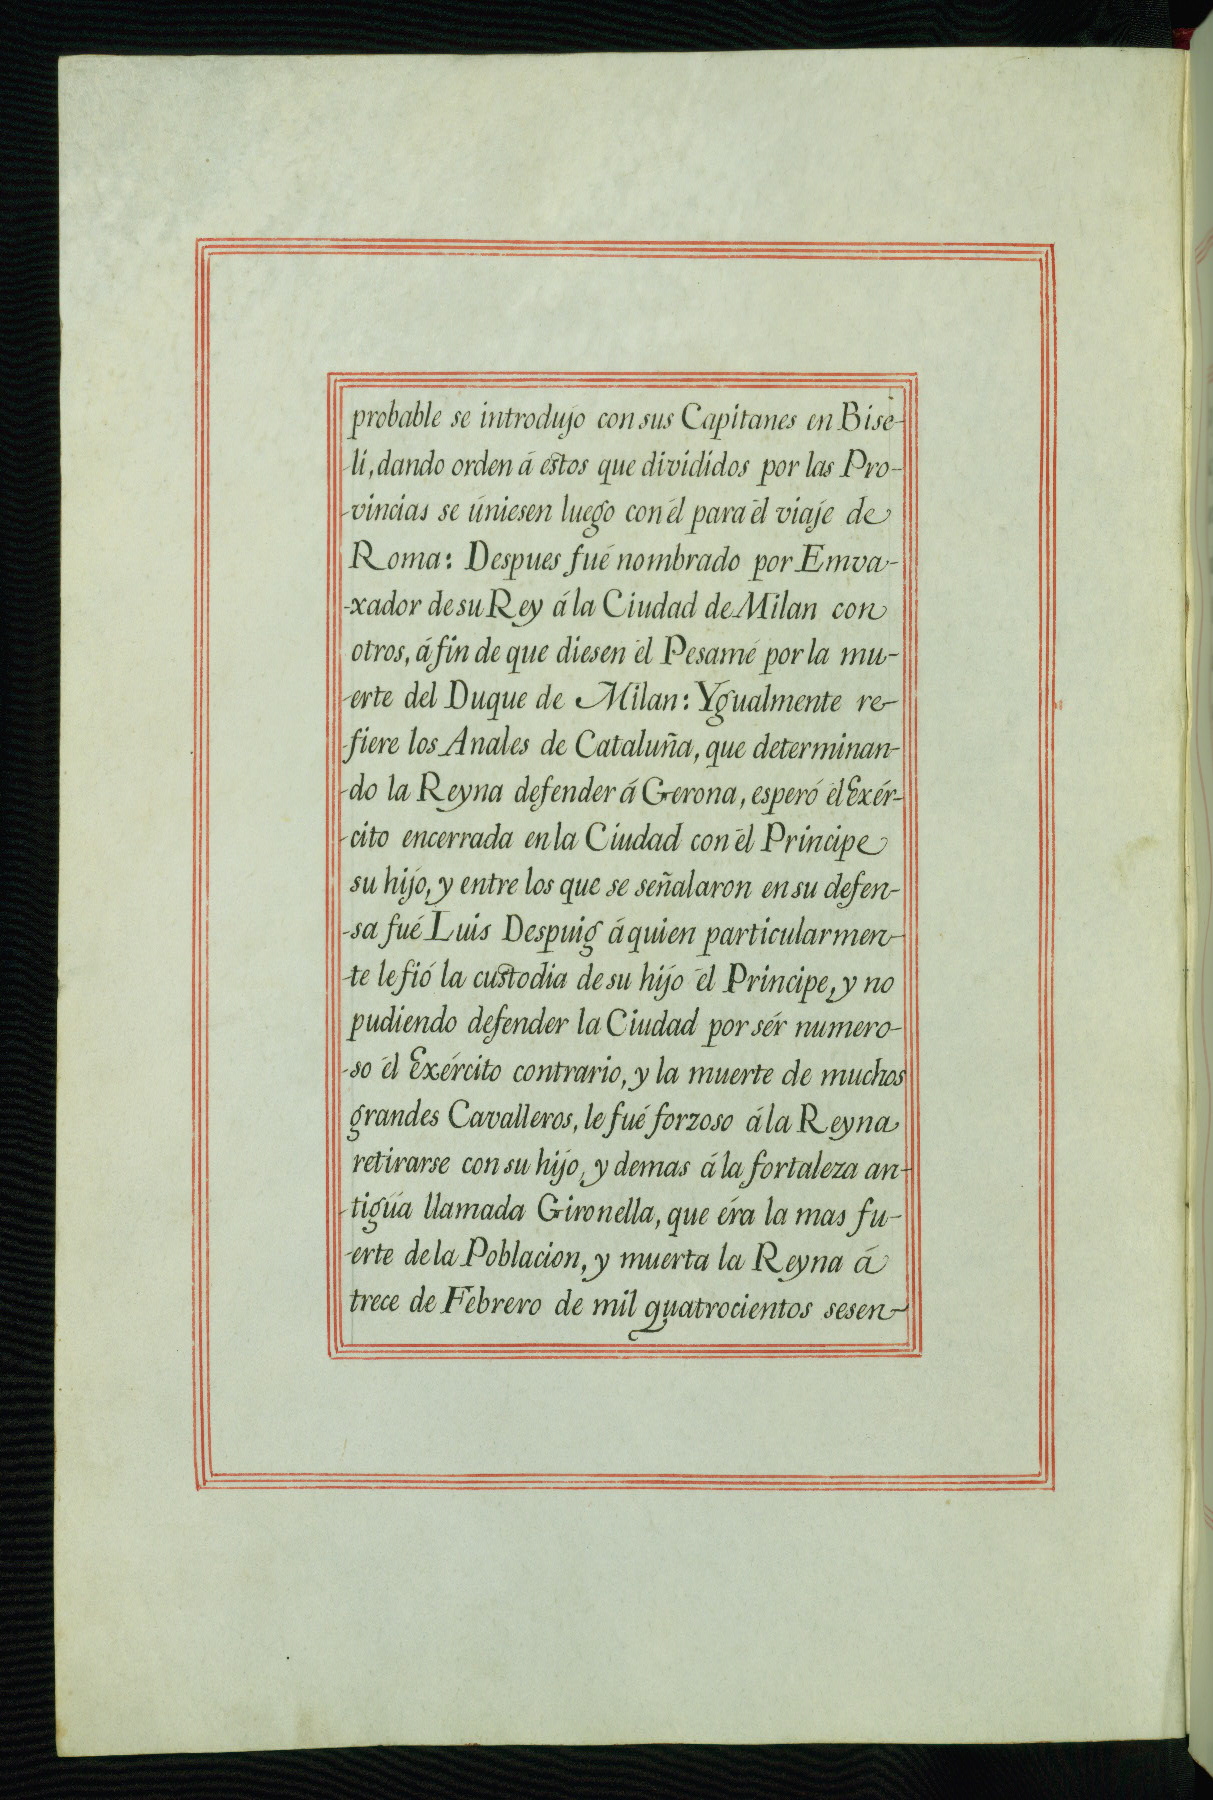 probable se introdujo con sus Capitanes en Bisè-
-li, dando orden á estos que divididos por las Pro-
-vincias se úniesen luego con él para él viaje de
Roma: Despues fué nombrado por Emva-
-xador de su Rey á la Ciudad de Milan con
otros, á fin de que diesen él Pesamé por la mu-
-erte del Duque de Milan: Ygualmente re-
-fiere los Anales de Cataluña, que determinan-
-do la Reyna defender á Gerona, esperó él Exér-
-cito encerrada en la Ciudad con él Principe
su hijo, y entre los que se señalaron en su defen-
-sa fué Luis Despuig á quien particularmen-
-te le fió la custodia de su hijo él Principe, y no
pudiendo defender la Ciudad por sér numero-
-so él Exército contrario, y la muerte de muchos
grandes Cavalleros, le fué forzoso á la Reyna
retirarse con su hijo, y demas á la fortaleza an-
-tigüa llamada Gironella, que éra la mas fu-
-erte de la Poblacion, y muerta la Reyna á
trece de Febrero de mil quatrocientos sesen-